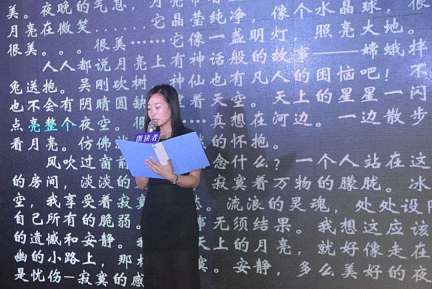 美。夜晚的气息，月光
月亮在微笑……它晶莹纯净，像个水晶球，很
很美……它像一盏明灯，照亮大地。
很……
人人都说月亮上有神话般的故事——嫦娥
兔送抱。吴刚砍树，神仙也有凡人的困恼吧！不
也不会有阴晴圆 着天空。天上的星星一闪
点亮整个夜空。很 真想在河边，一边散步
看月亮。仿佛 的怀抱。
风吹过窗 念什么？一个人站在这
的房间，淡淡的 寂寞着万物的朦胧。冰
空，我享受着 流浪的灵魂，处处设
自己所有的脆弱。 事无须结果。我想这应该
的遗憾和安静。 天上的月亮，就好像走在
幽的小路上，那 寞。安静，多么美好的夜
是忧伤—寂寞的感
朗读者